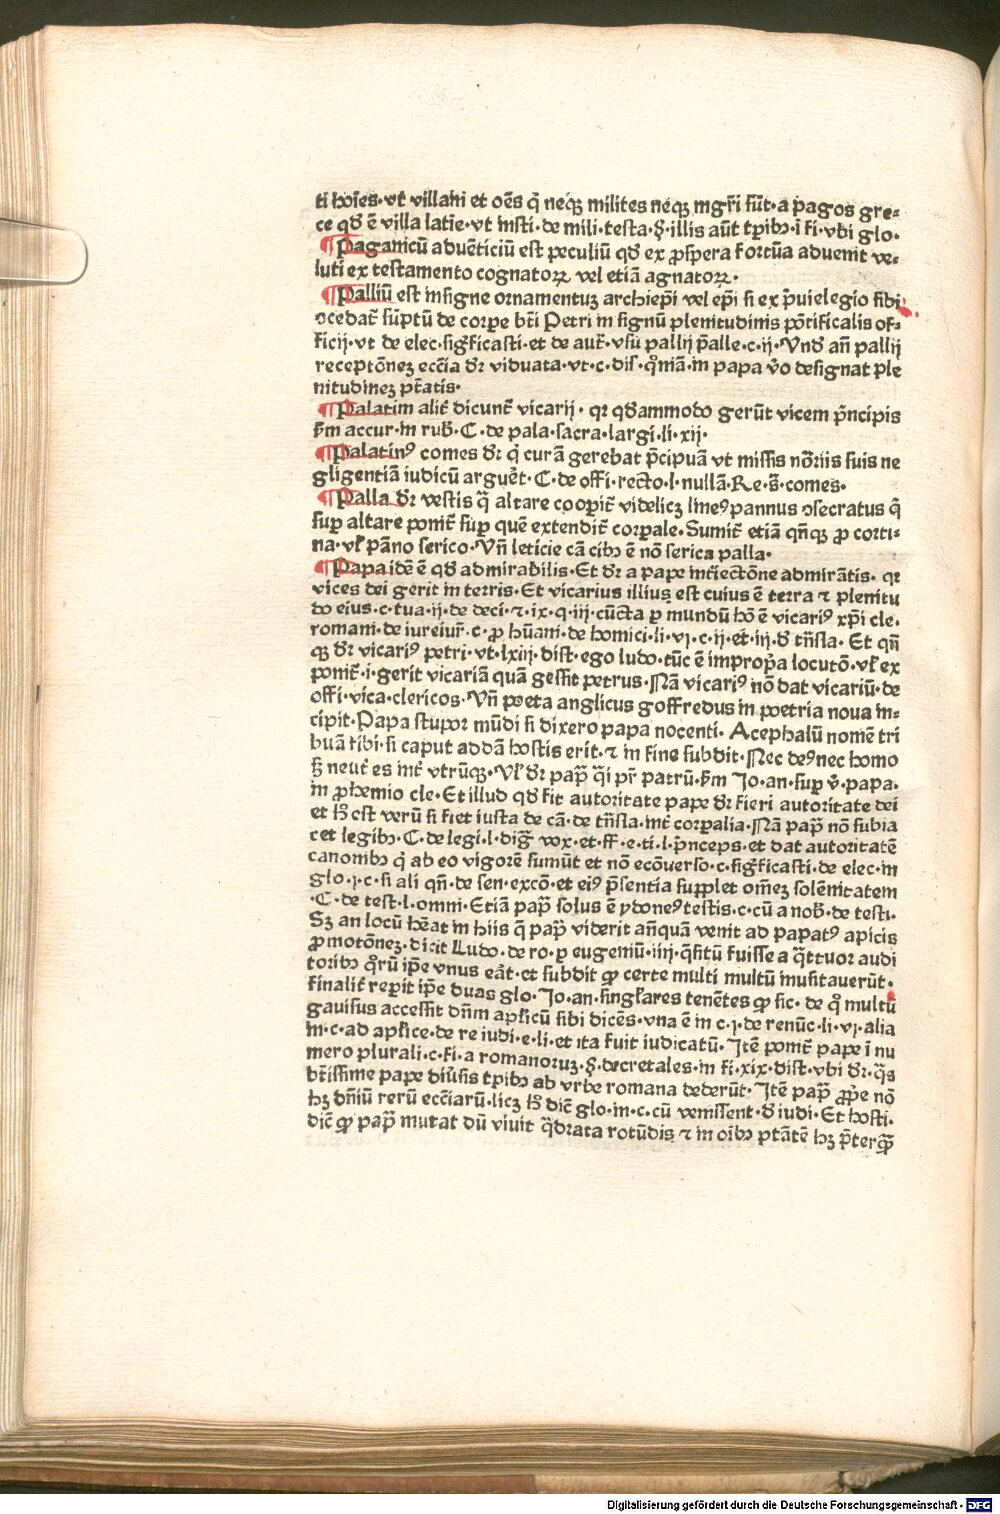 ti hoīes·vt̄ villani et oēs q̄ neqꝫ milites neqꝫ mgr̄i sūt·a pagos gre⸗
ce qđ ē villa latīe·vt insti·de mili·testa·§·illis aūt tp̄ibꝰ·ī fi·vbi glo·
¶Paganicū aduēticiū est peculiū qđ ex ꝓsꝑa fortūa aduenit ve⸗
luti ex testamento cognatoꝝ vel etiā agnatoꝝ·
¶Palliū est insigne ornamentuꝫ archiep̄i vel ep̄i si ex p̄uielegio sibi
ↄcedat̄ sūptū de corꝑe bt̄i Petri in signū plenitudinis pōtificalis of⸗
ficij·vt de elec·sigꝰficasti·et de aut̄·vsu pallij p̄alle·c·ij·Vnđ an̄ pallij
receptōneꝫ ecc̄ia dr̄ viduata·vt·c·dis·qm̄iā·in papa v̄o designat ple
nitudineꝫ pt̄atis·
¶Palatini alit̄ dicunt̄ vicarij·qꝛ qđammodo gerūt vicem p̄ncipis
ẜm accur·in rub̄·C·de pala·sacra·largi·li·xij·
¶Palatinꝰ comes dr̄ q̇ curā gerebat p̄cipuā vt missis nōriis suis ne
gligentiā iudicū arguēt·C·de offi·recto·l·nullā·Re·s̄·comes·
¶Palla dr̄ vestis q̄ altare cooꝑit̄ videlicꝫ lineꝰ pannus ↄsecratus q̄
suꝑ altare ponit̄ suꝑ quē extendit̄ corꝑale·Sumit̄ etiā qn̄qꝫ ꝓ corti⸗
na·vł pāno serico·Vn̄ leticie cā cibꝰ ē nō serica palla·
¶Papa idē ē qđ admirabilis·Et dr̄ a pape int̄iectōne admirātis·qꝛ
vices dei gerit in terris·Et vicarius illius est cuius ē terra ⁊ plenitu
do eius·c·tua·ij·de deci·⁊·ix·q·iij·cūcta ꝑ mundū hō ē vicariꝰ xp̄i cle·
romani·de iureiur̄·c·ꝓ hūani·de homici·li·vj·c·ij·et·iij·đ tn̄sla·Et qn̄
qꝫ dr̄ vicariꝰ petri·vt·lxiij·dist·ego ludo·tūc ē impropa locutō·vł ex
ponit̄·i·gerit vicariā quā gessit petrus·Nā vicariꝰ nō dat vicariū·de
offi·vica·clericos·Vn̄ poeta anglicus goffredus in poetria noua in⸗
cipit·Papa stupor mūdi si dixero papa nocenti·Acephalū nomē tri
buā tibi·si caput addā hostis erit·⁊ in fine subdit·Nec deꝰ nec homo
sꝫ neut̄ es int̄ vtrūqꝫ·Vł dr̄ pap̄ q̄i pr̄ patrū·ẜm Jo·an·suꝑ v̄·papa·
in ꝓhemio cle·Et illud qđ fit autoritate pape dr̄ fieri autoritate dei
et ħ est verū si fiet iusta de cā·de tn̄sla·int̄ corꝑalia·Nā pap̄ nō subia
cet legibꝰ·C·de legi·l·diḡ·vox·et·ff·e·ti·l·p̄nceps·et dat autoritatē
canonibꝰ q̇ ab eo vigorē sumūt et nō ecōuerso·c·sigꝰficasti·de elec·in
glo·j·c·si ali qn̄·de sen·excō·et eiꝰ p̄sentia supplet omēꝫ solēnitatem
·C·de test·l·omni·Etiā pap̄ solus ē ydoneꝰ testis·c·cū a nob̄·de testi·
Sꝫ an locū hēat in hiis q̄ pap̄ viderit an̄quā venit ad papatꝰ apicis
ꝓmotōneꝫ·dicit Ludo·de ro·ꝑ eugeniū·iiij·q̄sitū fuisse a q̄ttuor audi
toribꝰ qrū ip̄e vnus eāt·et subdit ꝙ certe multi multū musitauerūt·
finalit̄ reꝑit ip̄e duas glo·Jo·an·singłares tenētes ꝙ sic·de q̊ multū
gauisus accessit dn̄m aplicū sibi dicēs·vna ē in c·j·de renūc·li·vj·alia
in·c·ad aplice·de re iudi·e·li·et ita fuit iudicatū·Jtē ponit̄ pape ī nu
mero plurali·c·fi·a romanoruꝫ·§·decretales·in fi·xix·dist·vbi dr̄·q̄s
bt̄issime pape diu̓sis tp̄ibꝰ ab vrbe romana dederūt·Jtē pap̄ ꝓpe nō
hꝫ dn̄iū rerū ecc̄iarū·licꝫ ħ dic̄ glo·in·c·cū venissent·đ iudi·Et hosti·
dic̄ ꝙ pap̄ mutat dū viuit q̄drata rotūdis ⁊ in oībꝰ ptātē hꝫ p̄terqꝫ
Digitalisierung gefördert durch die Deutsche Forschungsgemeinschaft · DFG